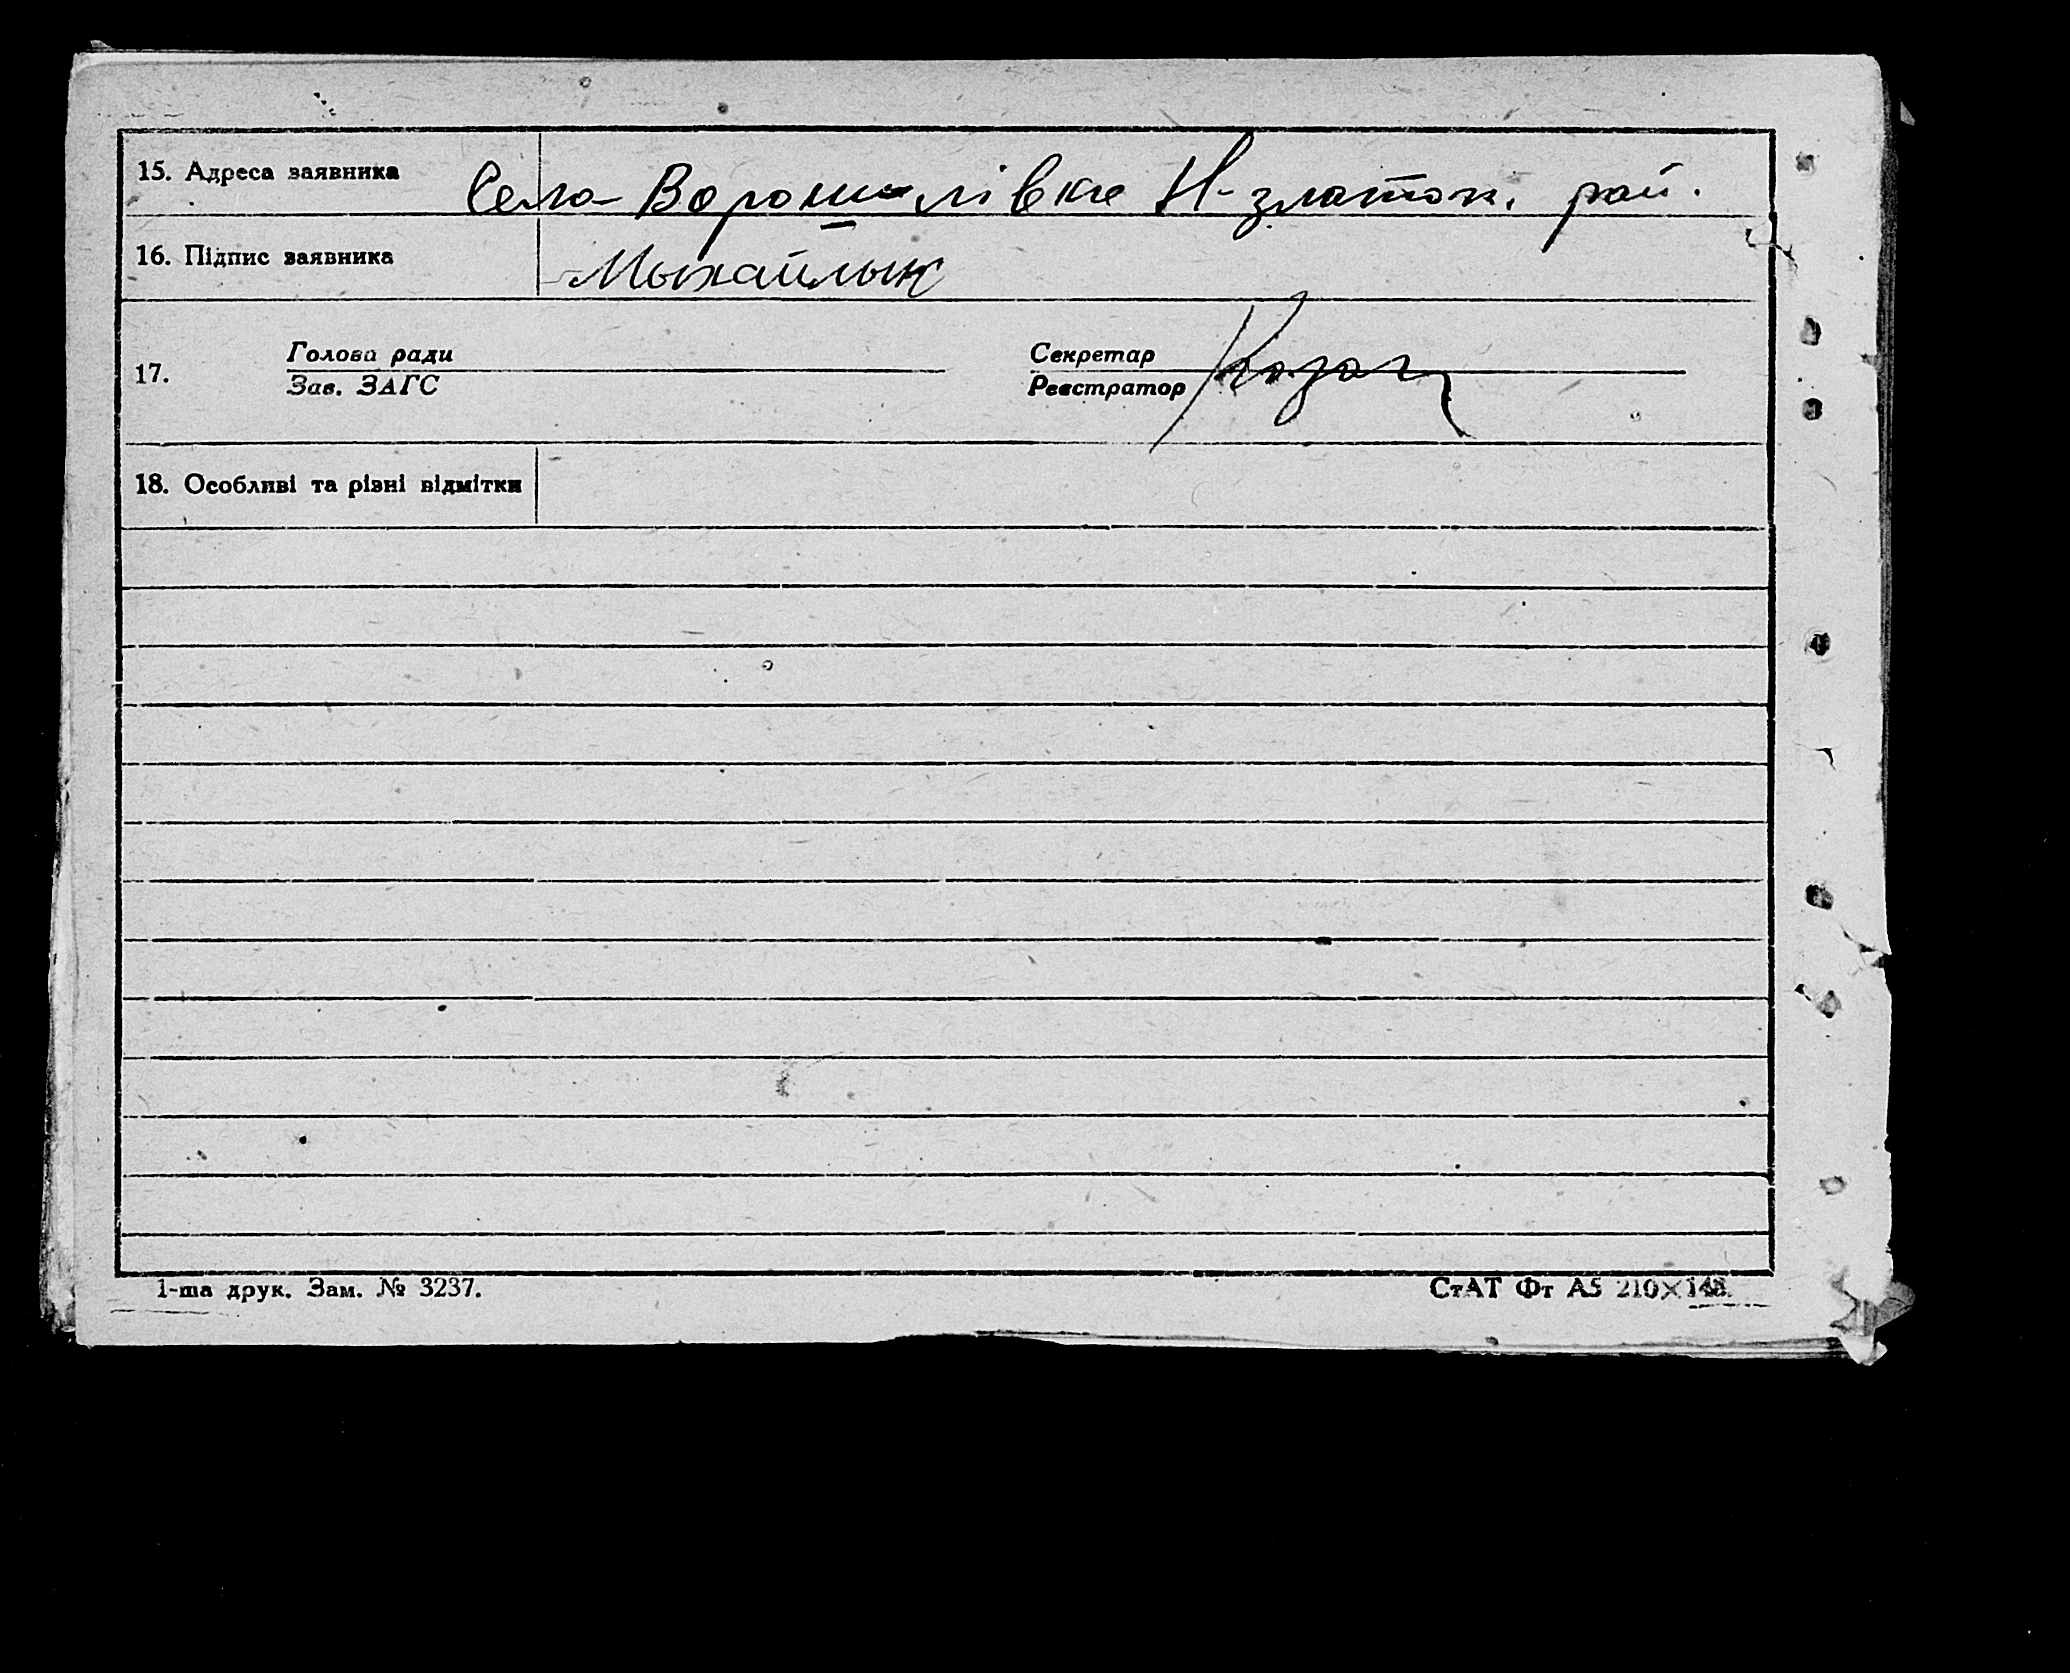 15. Адреса заявника Село Ворошилівка Н-златоп. рай.
16. Підпис заявника Мыхайлык
Голова ради Секретар
17.
Зав. ЗАГС Реєстратор Козач
18. Особливі та різні відмітки
1-ша друк. Зам. № 3237. СтАТ Фт А5 210×148.